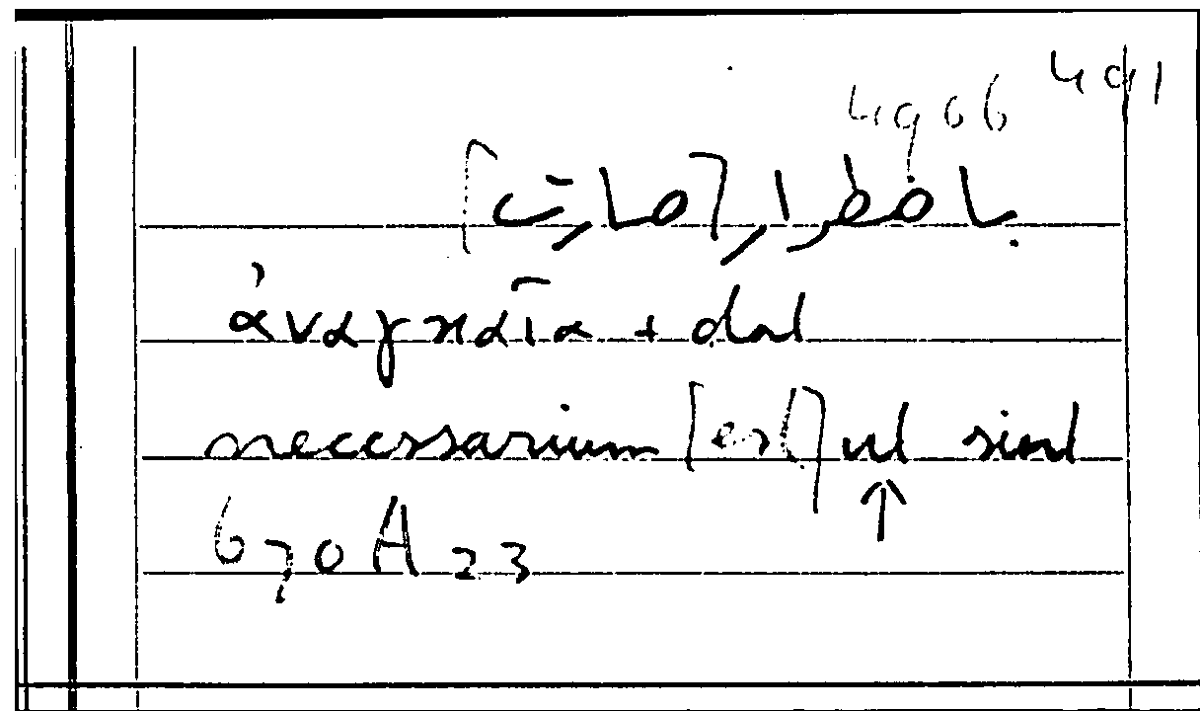 4906 491
باضطرار [صارت]
ἀναγκαῖα + dat
necessarium [est] ut sint
↑
670A23